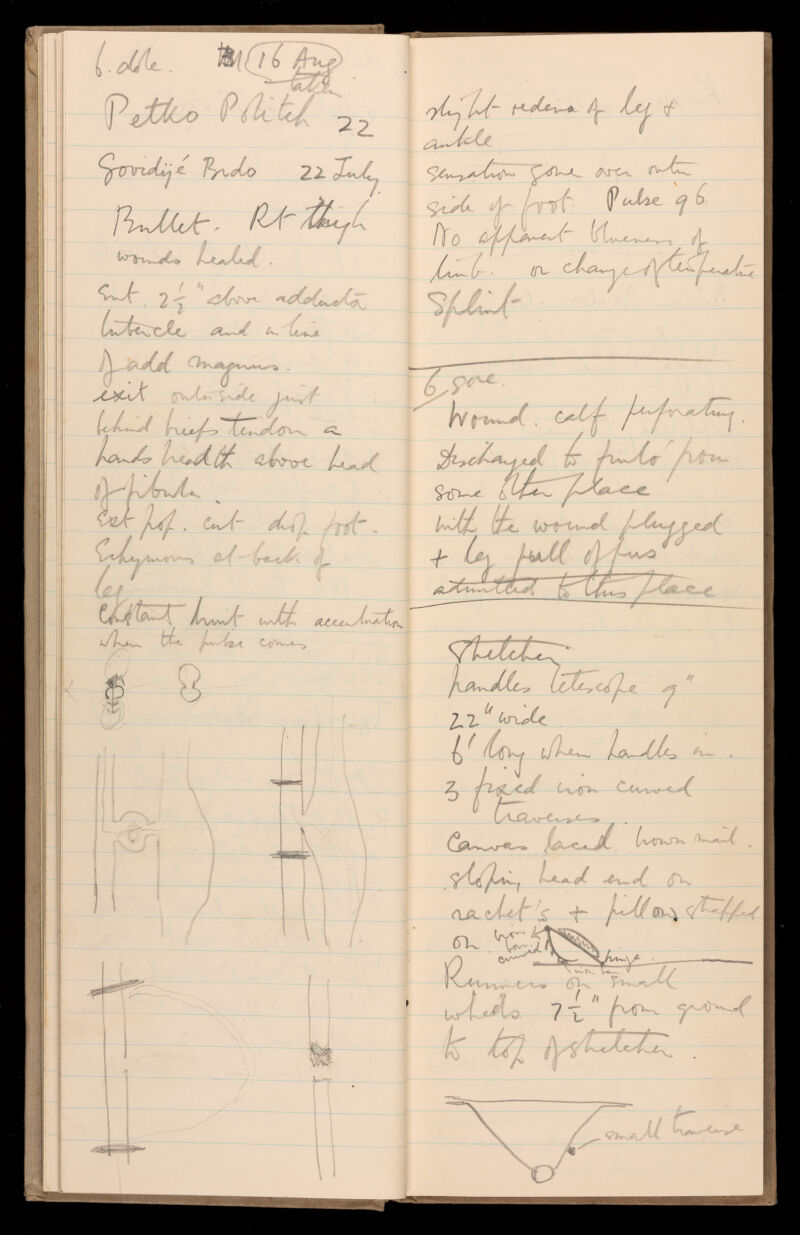 6. dole. 16 Aug
taken
Petko Politch 22
Govidijé Brdo 22 July
Bullet. Rt thigh
wounds healed.
Ent. 2½" above adductor
tubercle and in line
of add magnus.
exit outer side just
behind biceps tendon a
hands breadth above head
of fibula.
Ext pop. cut drop foot.
Echymosis at back of
leg
Constant bruit with accentuation
when the pulse comes
slight oedema of leg +
ankle
sensation gone over outer
side of foot. Pulse 96
No apparent blueness of
limb. or change of temperature
Splint
6 sore.
Wound. calf perforating.
Discharged to from
some other place
with the wound plugged
+ leg full of pus
admitted to this place
Stretcher
handles telescope 9"
22" wide
6' long when handles in.
3 fixed iron curved
traverses.
Canvas laced brown mail.
sloping head end on
rachet's + pillow strapped
on iron
curved hinge.
Runners on small
wheels 7½" from ground
to top of stretcher.
small traverse